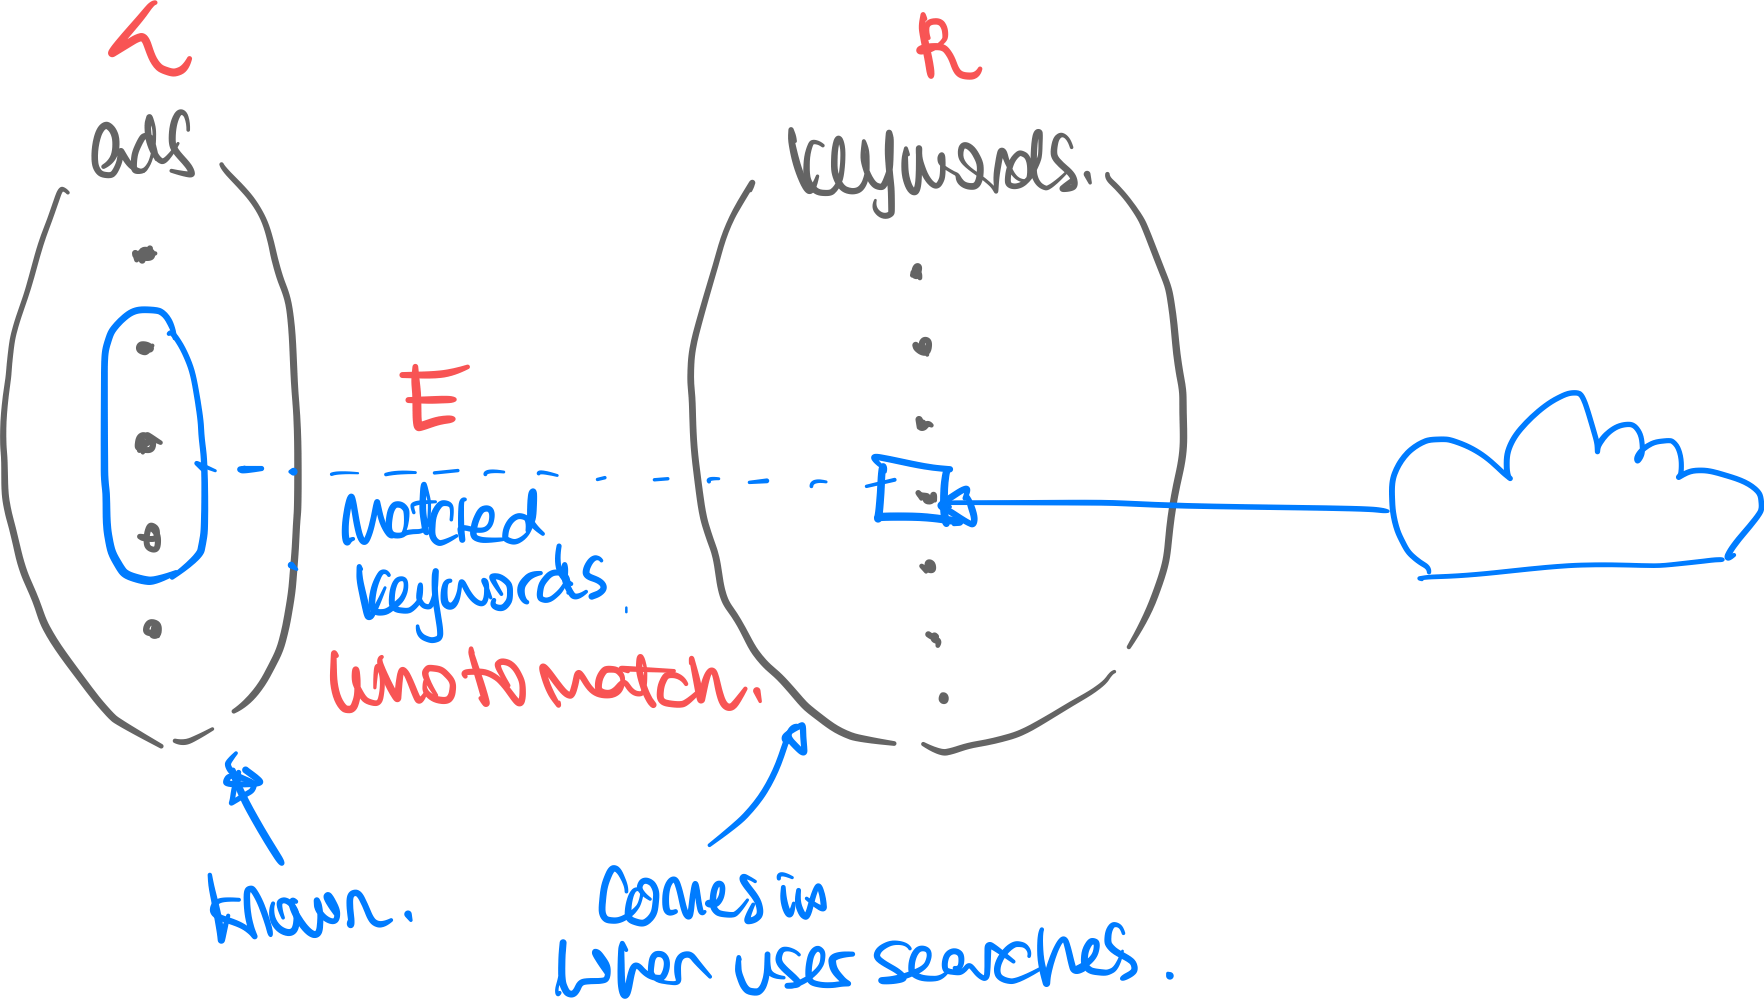 L
R
ads
keywords.
E
matched
keywords.
who to match.
known.
Comes in
when user searches.